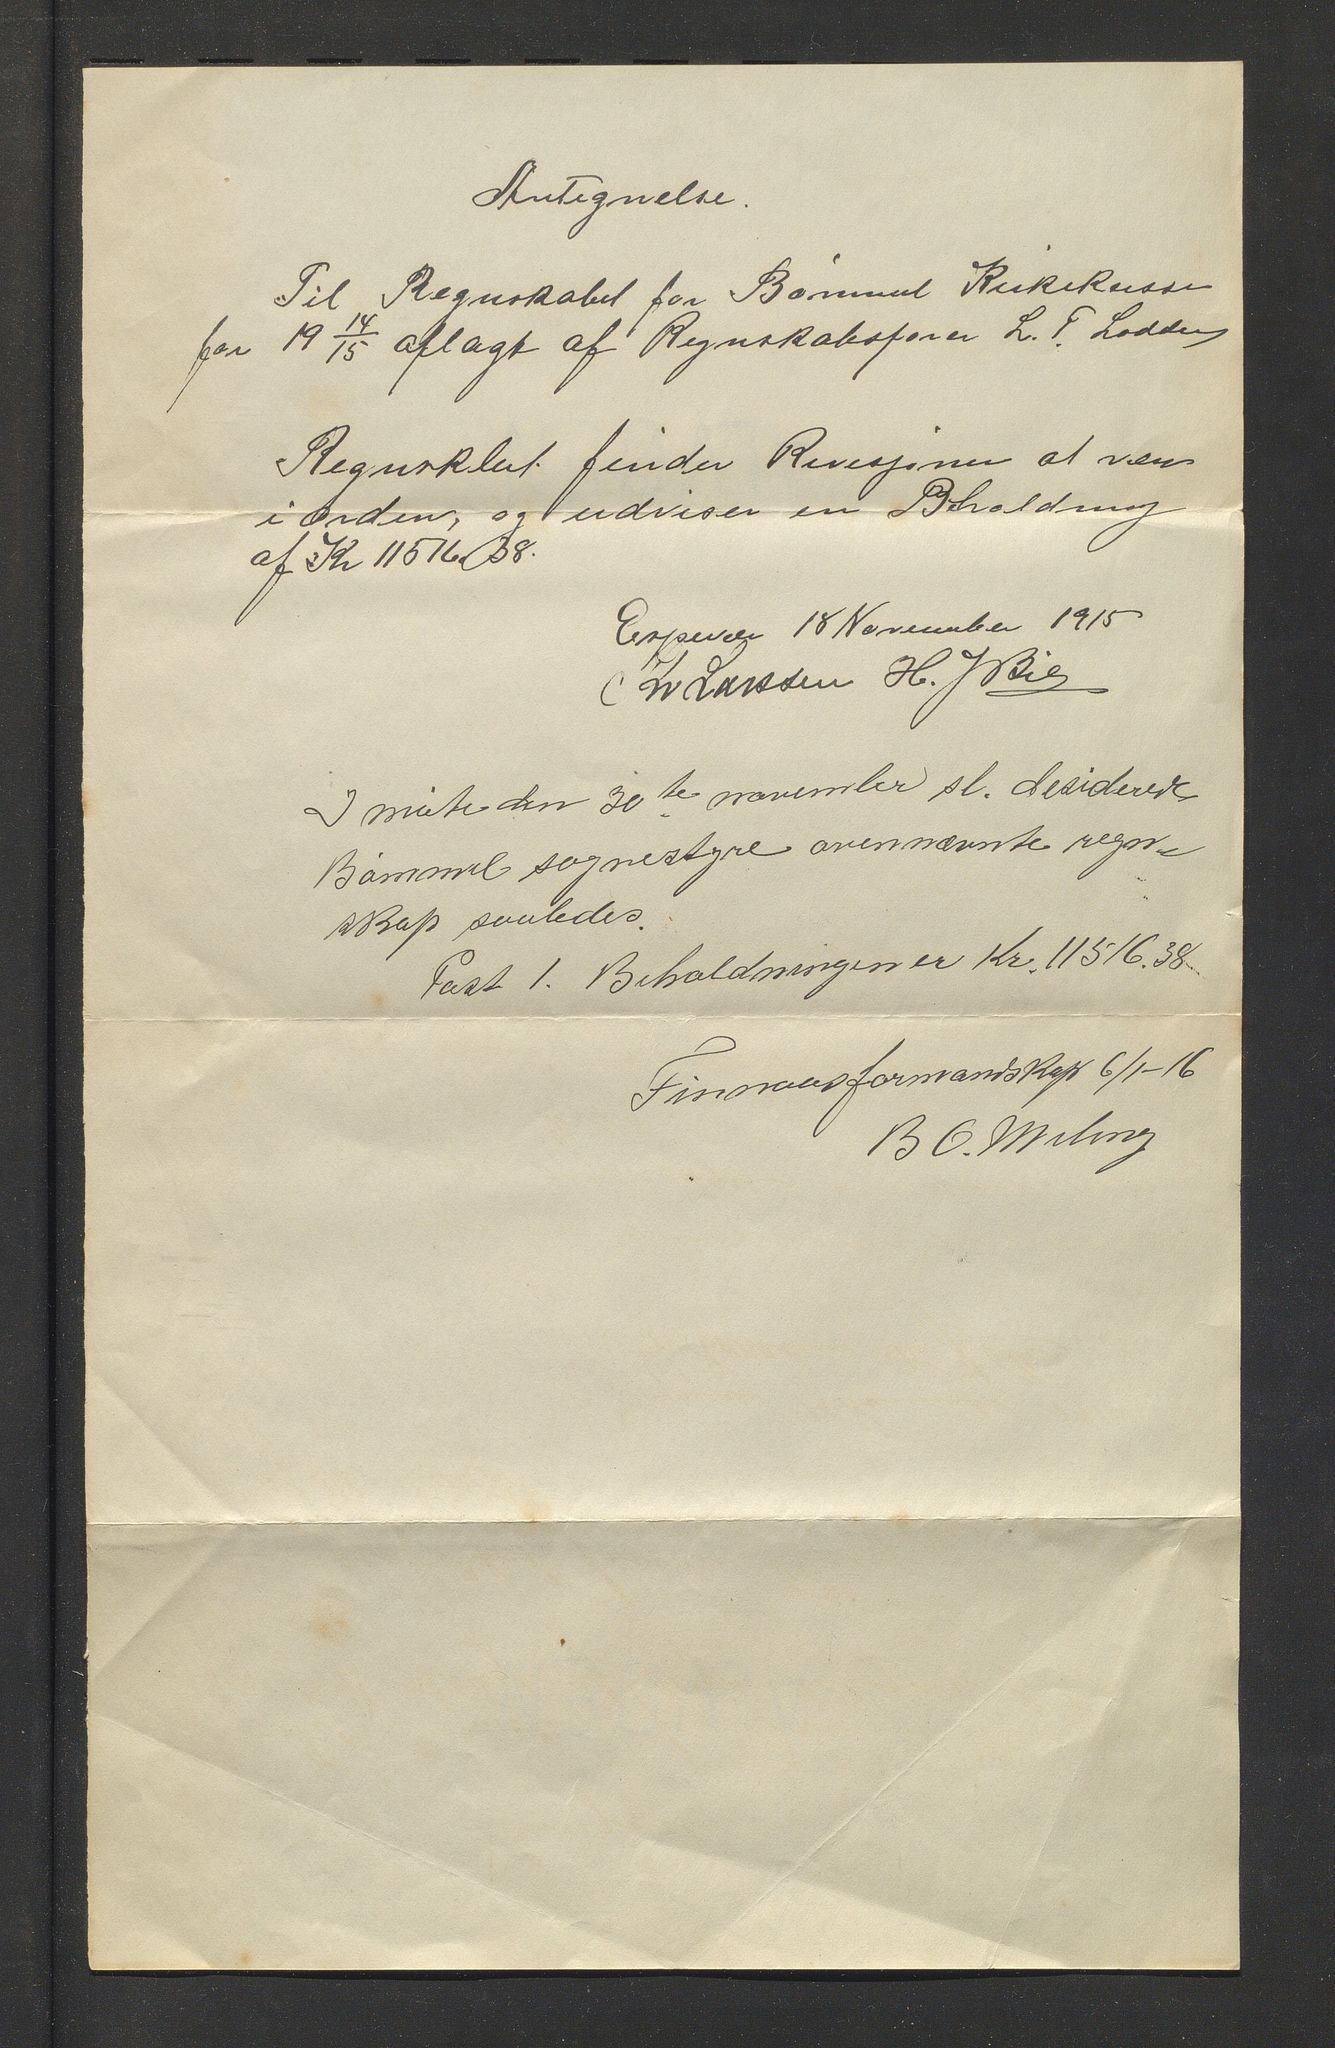 Antegnelse.
Til Regnskabet for Bømmel Kirkekasse
for 19 14/15 aflagt af Regnskabsfører L. T. Lodden
Regnsklet finder Revisjonen at være
i orden, og udviser en Beholdning
af Kr 11516.38.
Espevær 18 November 1915
Larssen H. J Bie
I møte den 30te november sl. desiderede
Bømmel sognestyre ovennævnte regn-
skap saaledes.
Post 1. Beholdningen er Kr. 11516.38
Finnaas formandskap 6/1-16
B O. Meling